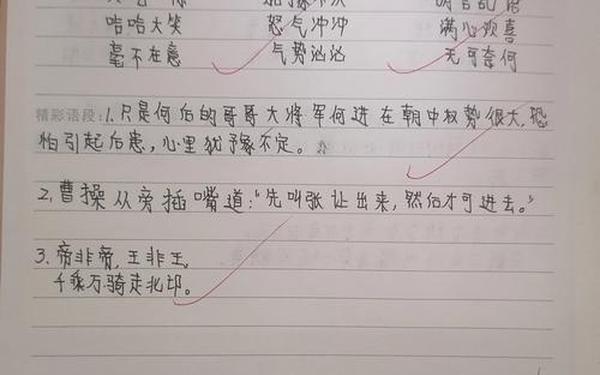 哈哈大笑 怒气冲冲 满心欢喜
毫不在意 气势汹汹 无可奈何
精彩语段:1.只是何后的哥哥大将军何进在朝中权势很大,恐
怕引起后患,心里犹豫不定。
2.曹操从旁插嘴道:“先叫张让出来,然后才可进去。”
3.帝非帝,王非王,
千乘万骑走北邙。